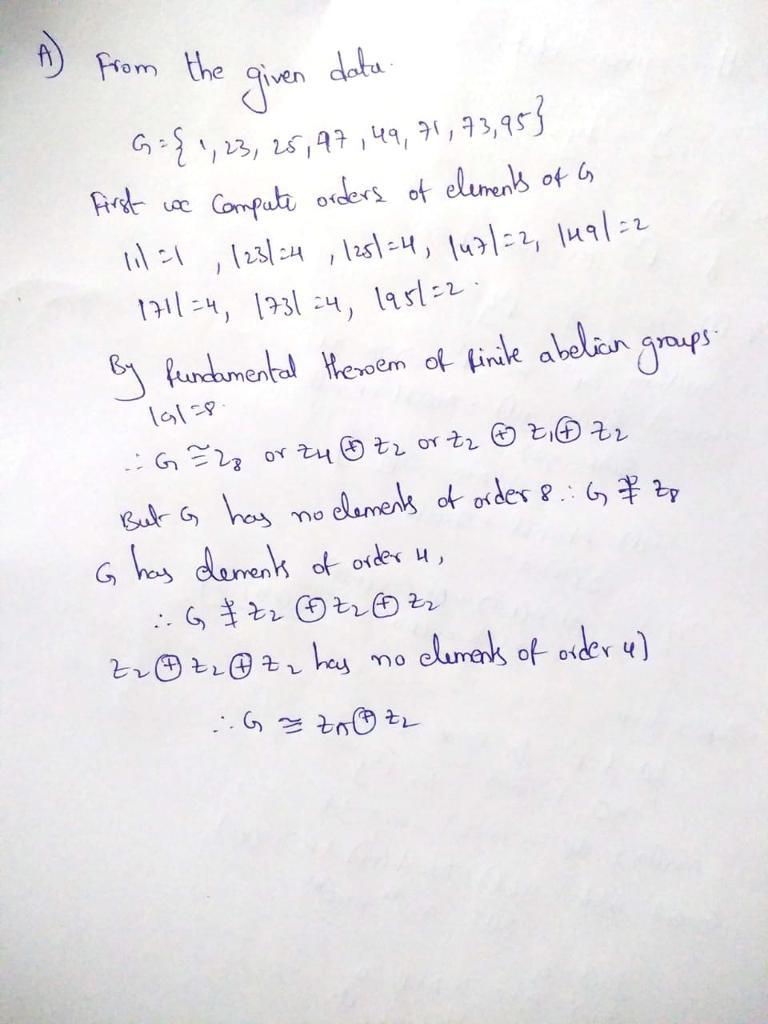 A) From the given data.
G = { 1, 23, 25, 47, 49, 71, 73, 95 }
First we Compute orders of elements of G
|1| = 1 , |23| = 4 , |25| = 4, |47| = 2, |49| = 2
|71| = 4, |73| = 4, |95| = 2.
By fundamental theroem of finite abelian groups.
|G| = 8.
∴ G ≅ Z8 or Z4 ⊕ Z2 or Z2 ⊕ Z, ⊕ Z2
But G has no elements of order 8 ∴ G ≇ Z8
G has elements of order 4,
∴ G ≇ Z2 ⊕ Z2 ⊕ Z2
Z2 ⊕ Z2 ⊕ Z2 has no elements of order 4)
∴ G ≅ Z4 ⊕ Z2